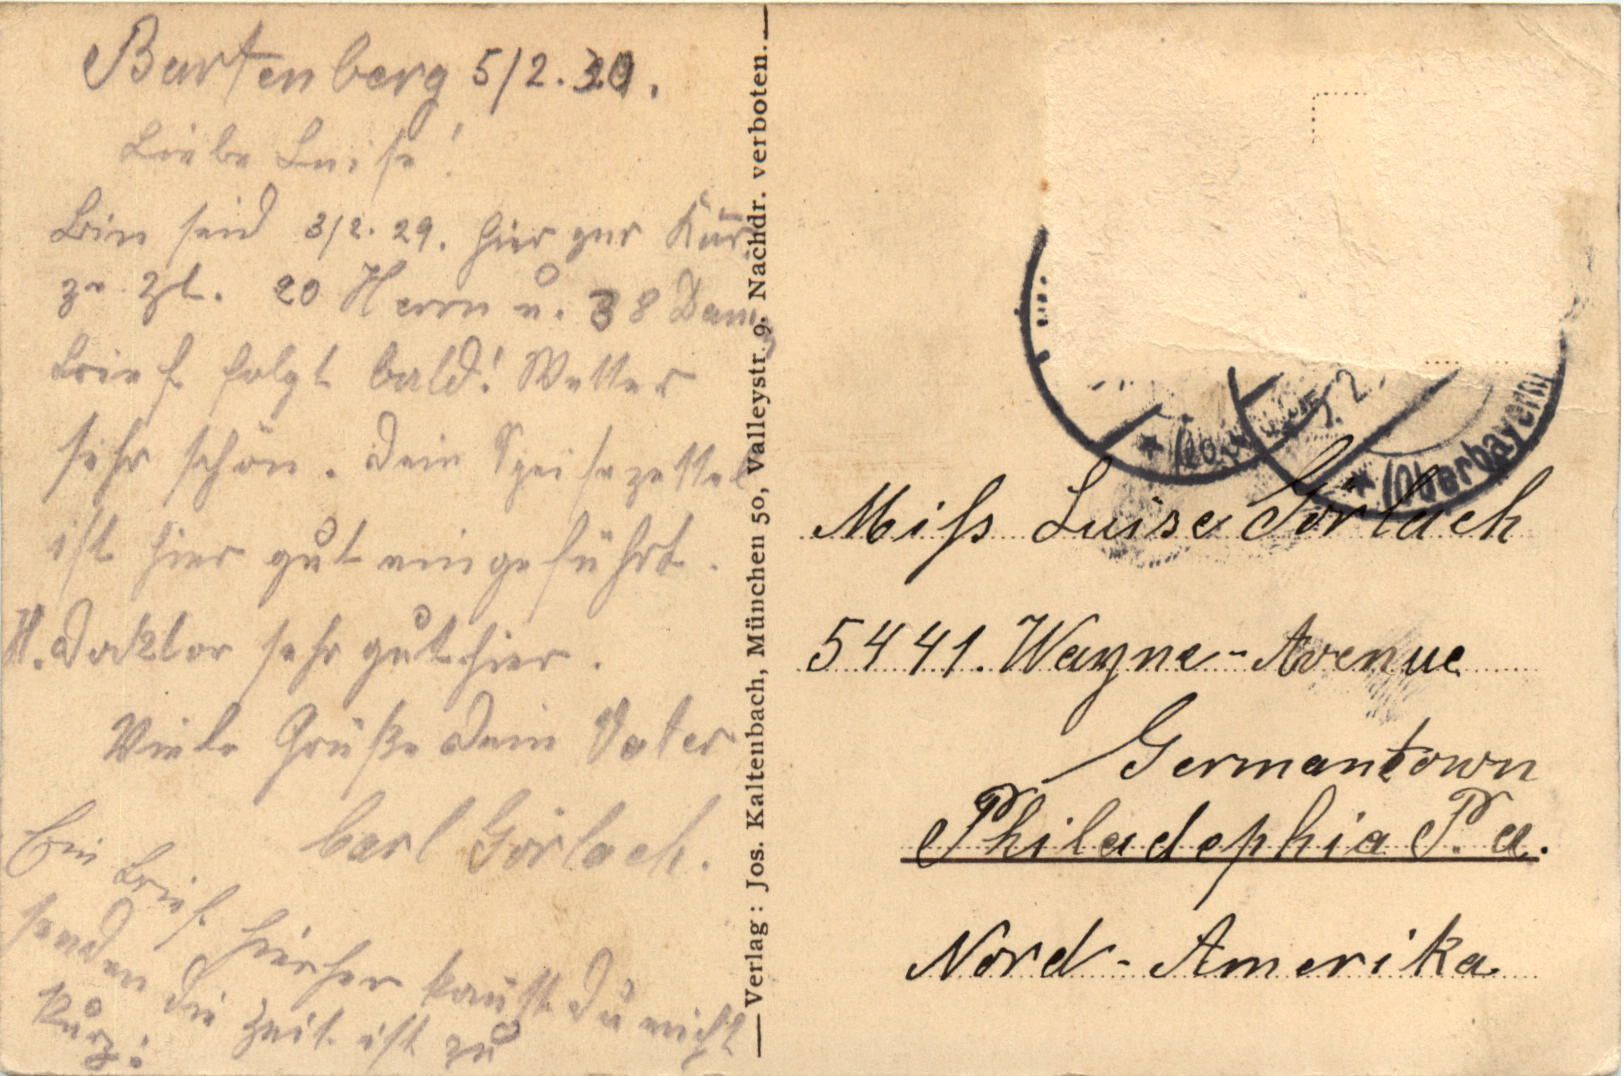 Bartenberg 5/2. 29.
Liebe Luise!
Bin seid 3/2. 29. hier zur Kur.
zr. Zt. 20 Herrn u. 38 Dam.
Brief folgt bald! Wetter
sehr schön. Dein Speisezettel
ist hier gut eingeführt.
H. Doktor sehr gut hier.
Viele Grüße Dein Vater
Carl Görlach.
Ein Brief hierher kanst Du nicht
senden die Zeit ist zu
kurz!
Verlag: Jos. Kaltenbach, München 50, Valleystr. 9. Nachdr. verboten.
* (Oberbayern)
Miss Luise Görlach
5441. Wayne-Avenue
Germantown
Philadephia P.a.
Nord-Amerika